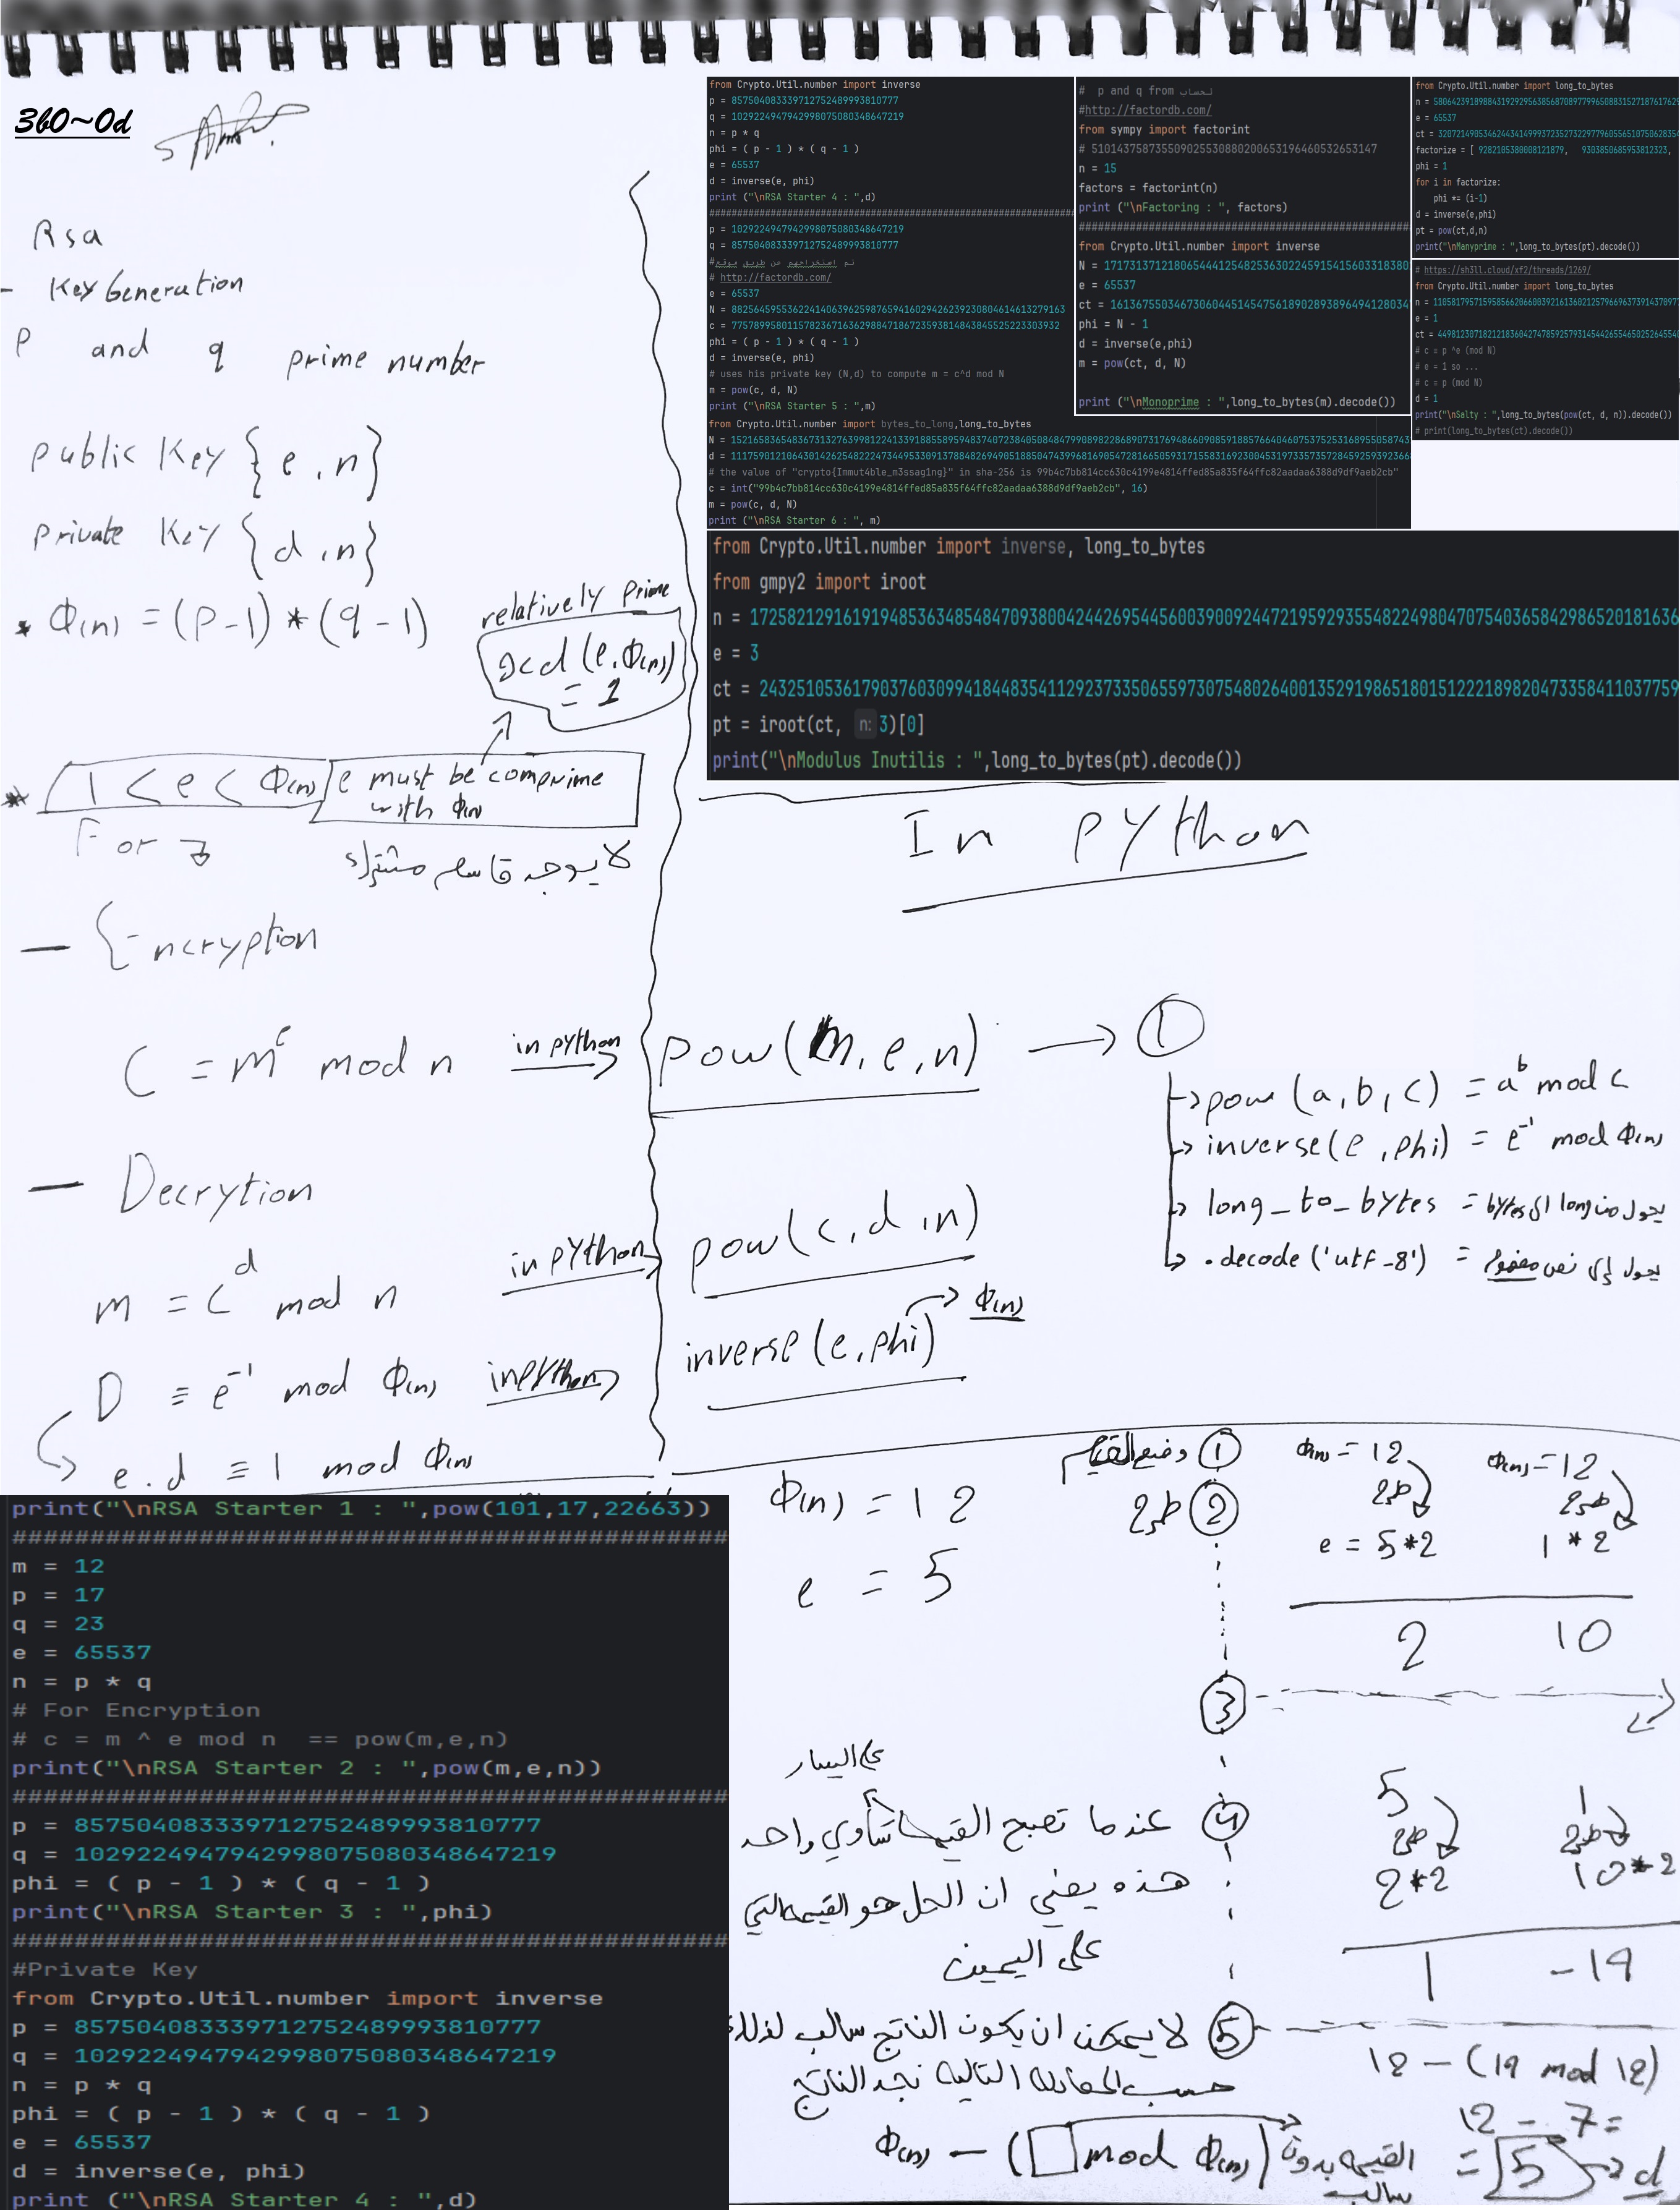 360~0d
Rsa
- Key Generation
P and q prime number
public Key {e,n}
Private Key {d,n}
* Φ(n) = (P-1)*(q-1)
relatively Prime
gcd(e,Φ(n))
= 1
* 1 < e < Φ(n)
e must be comprime
with Φ(n)
For
لا يوجد قاسم مشترك
- Encryption
C = m^e mod n in python pow(m,e,n) → ①
- Decrytion
m = c^d mod n in python pow(c,d,n)
D ≡ e^-1 mod Φ(n) in python inverse(e,phi) → Φ(n)
e.d ≡ 1 mod Φ(n)
from Crypto.Util.number import inverse
p = 857504083339712752489993810777
q = 1029224947942998075080348647219
n = p * q
phi = ( p - 1 ) * ( q - 1 )
e = 65537
d = inverse(e, phi)
print ("\nRSA Starter 4 : ",d)
p = 1029224947942998075080348647219
q = 857504083339712752489993810777
#تم استخراجهم عن طريق موقع
# http://factordb.com/
e = 65537
N = 882564595536224140639625987659416029426239230804614613279163
c = 77578995801157823671636298847186723593814843845525223303932
phi = ( p - 1 ) * ( q - 1 )
d = inverse(e, phi)
# uses his private key (N,d) to compute m = c^d mod N
m = pow(c, d, N)
print ("\nRSA Starter 5 : ",m)
from Crypto.Util.number import bytes_to_long,long_to_bytes
# the value of "crypto{Immut4ble_m3ssag1ng}" in sha-256 is 99b4c7bb814cc630c4199e4814ffed85a835f64ffc82aadaa6388d9df9aeb2cb"
c = int("99b4c7bb814cc630c4199e4814ffed85a835f64ffc82aadaa6388d9df9aeb2cb", 16)
m = pow(c, d, N)
print ("\nRSA Starter 6 : ", m)
# p and q from لحساب
#http://factordb.com/
from sympy import factorint
# 510143758735509025530880200653196460532653147
n = 15
factors = factorint(n)
print ("\nFactoring : ", factors)
from Crypto.Util.number import inverse
e = 65537
phi = N - 1
d = inverse(e,phi)
m = pow(ct, d, N)
print ("\nMonoprime : ",long_to_bytes(m).decode())
from Crypto.Util.number import long_to_bytes
e = 65537
factorize = [ 9282105380008121879, 9303850685953812323,
phi = 1
for i in factorize:
phi *= (i-1)
d = inverse(e,phi)
pt = pow(ct,d,n)
print("\nManyprime : ",long_to_bytes(pt).decode())
# https://sh3ll.cloud/xf2/threads/1269/
e = 1
# c ≡ p ^e (mod N)
# e = 1 so ...
# c ≡ p (mod N)
d = 1
print("\nSalty : ",long_to_bytes(pow(ct, d, n)).decode())
# print(long_to_bytes(ct).decode())
from Crypto.Util.number import inverse, long_to_bytes
from gmpy2 import iroot
n = 1725821291619194853634854847093800424426954456003900924472195929355482249804707540365842986520181636
e = 3
ct = 243251053617903760309941844835411292373350655973075480264001352919865180151222189820473358411037759
pt = iroot(ct, n: 3)[0]
print("\nModulus Inutilis : ",long_to_bytes(pt).decode())
In PYthon
pow (a,b,c) = a^b mod c
inverse(e,phi) = e^-1 mod Φ(n)
long_to_bytes = يحول من long الى bytes
.decode('utf-8') = يحول الى نص مفهوم
print("\nRSA Starter 1 : ",pow(101,17,22663))
m = 12
p = 17
q = 23
e = 65537
n = p * q
# For Encryption
# c = m ^ e mod n == pow(m,e,n)
print("\nRSA Starter 2 : ",pow(m,e,n))
p = 857504083339712752489993810777
q = 1029224947942998075080348647219
phi = ( p - 1 ) * ( q - 1 )
print("\nRSA Starter 3 : ",phi)
#Private Key
from Crypto.Util.number import inverse
p = 857504083339712752489993810777
q = 1029224947942998075080348647219
n = p * q
phi = ( p - 1 ) * ( q - 1 )
e = 65537
d = inverse(e, phi)
print ("\nRSA Starter 4 : ",d)
Φ(n) = 12
e = 5
① وضع القيم
② طرح
Φ(n) = 12 Φ(n) = 12
طرح طرح
e = 5*2 1*2
2 10
③
5 1
طرح طرح
2*2 10*2
1 -19
على اليسار
④ عندما تصبح القيمة تساوي واحد
هذه يعني ان الحل هو القيمه التي
على اليمين
⑤ لا يمكن ان يكون الناتج سالب لذلك
حسب المعادله التاليه نجد الناتج
Φ(n) - (□ mod Φ(n)) القيمه بدون
سالب
12 - (19 mod 12)
12 - 7 =
= 5 → d